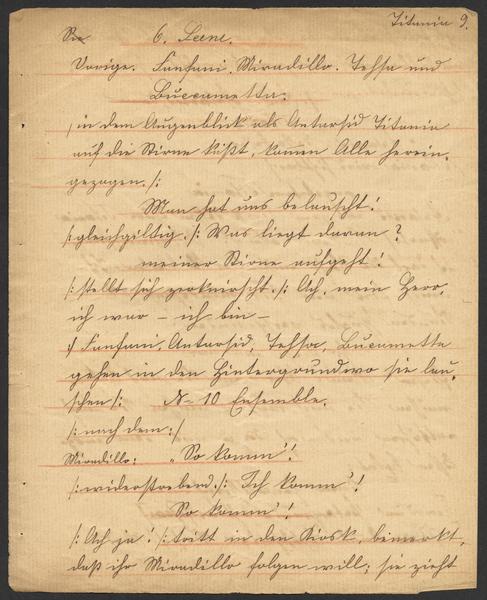 Titania 9.
6. Scene.
Vorige. Fanfani. Miradillo. Tessa und
Buccametta.
/in dem Augenblick als Antarsid Titania
auf die Stirne küßt, kommen Alle herein-
gezogen./:
Man hat uns belauscht!
/:gleichgiltig./: Was liegt daran?
meiner Stirne aufgeht!
/:stellt sich zerknirscht./: Ach, mein Herr,
ich war – ich bin –
Fanfani, Antarsid, Tessa, Bucametta
gehen in den Hintergrund wo sie lau-
schen/: No 10 Ensemble.
/:nach dem:/
Miradillo: "So komm'!
/:widerstrebend:/: Ich komm'!
So komm'!
/:Ach ja! /:tritt in den Kiosk, bemerkt,
daß ihr Miradillo folgen will; sie zieht